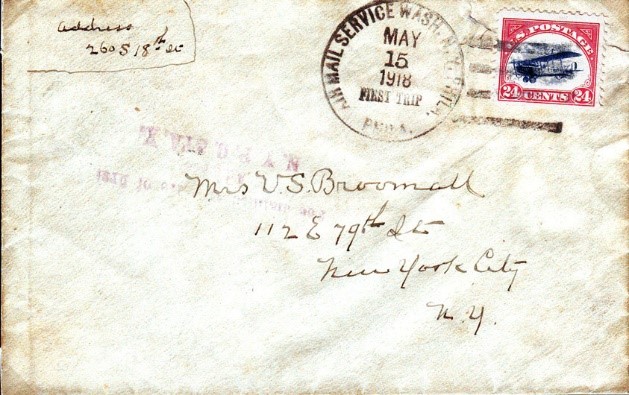 address
260 S 18th St
AIR MAIL SERVICE WASH. N.Y. PHILA.
MAY
15
1918
FIRST TRIP
PHILA.
U.S. POSTAGE
24 CENTS 24
N. Y. P. O.
Mrs V. S. Broomall
112 E 79th St
New York City
N.Y.